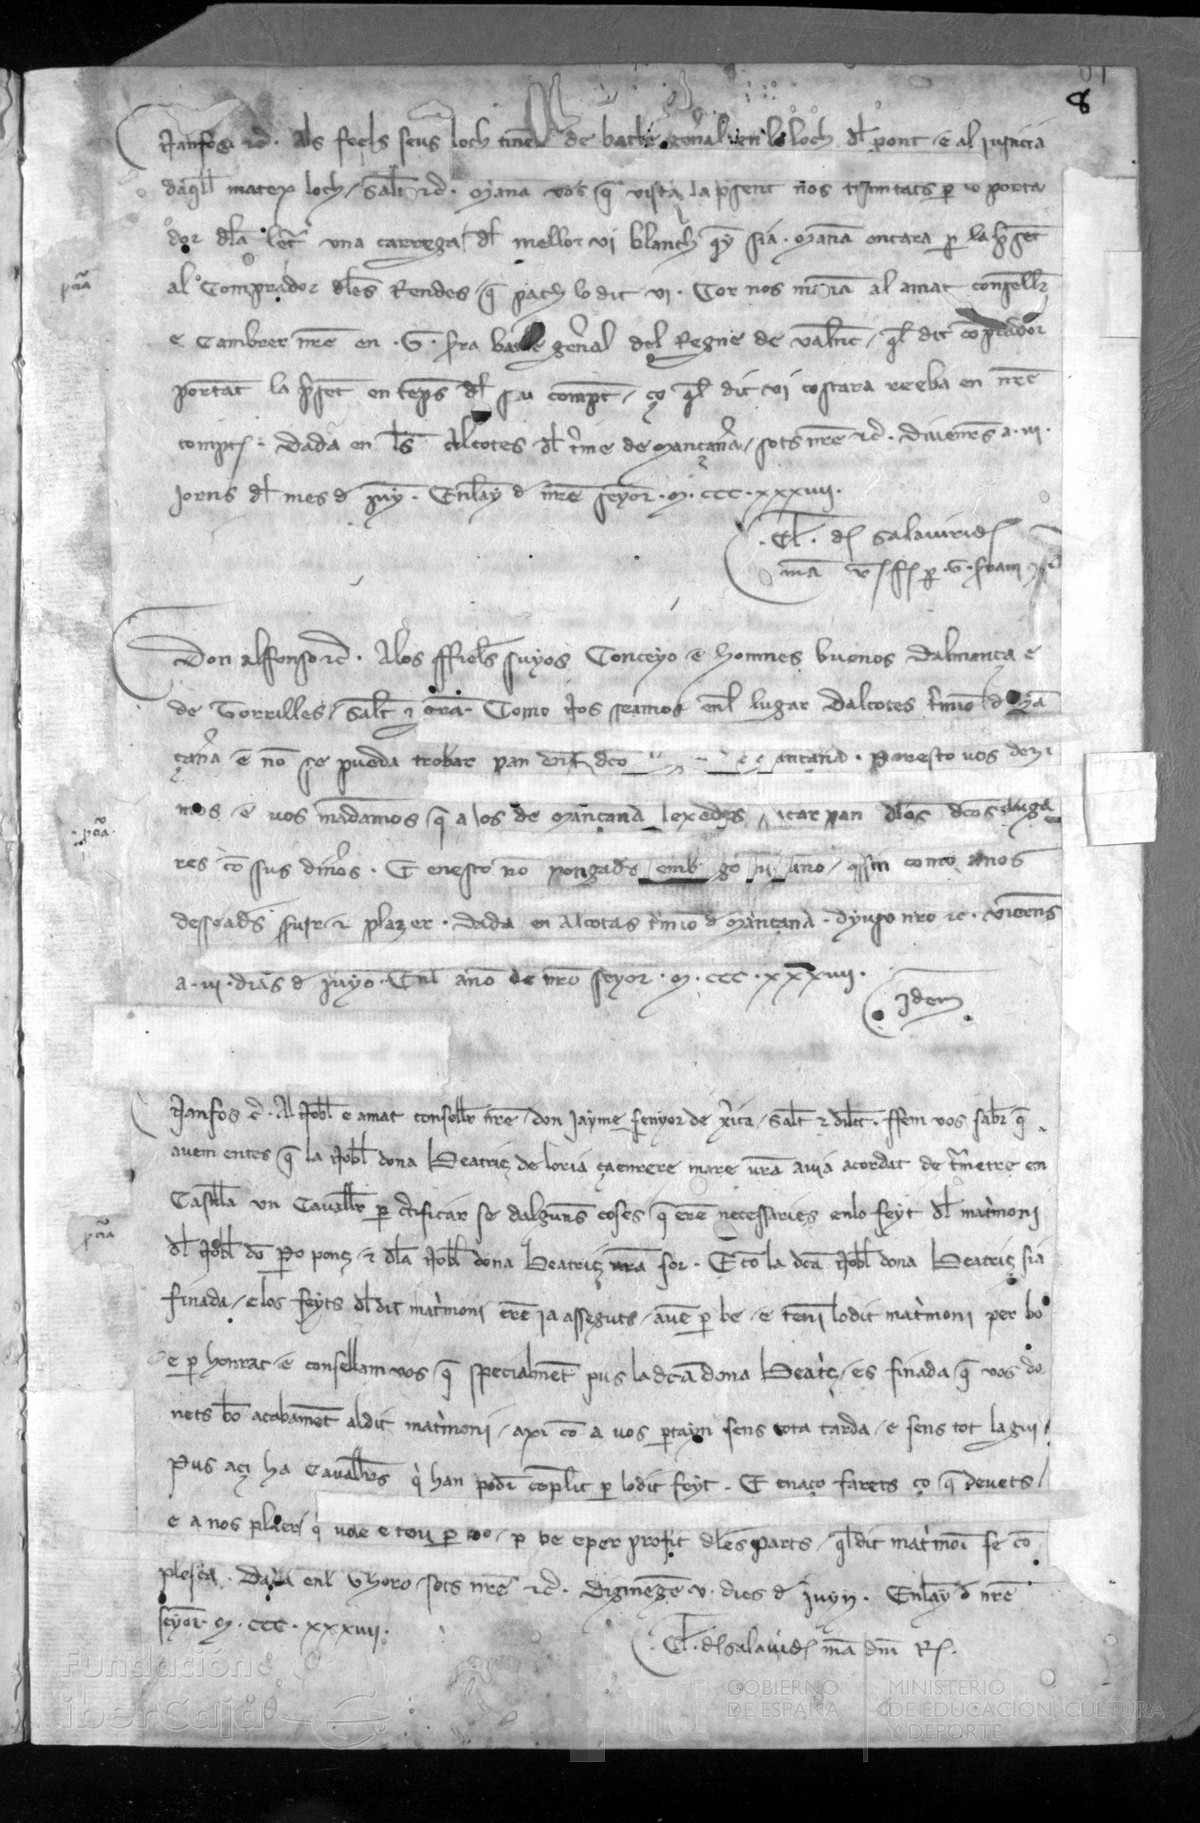 8
Nanfos etc. Als feels seus loch tinent de batle general en lo loch dl pont e al justicia
daqll mateix loch salt etc. Manam vos q vista la psent nos trametats p lo porta
dor dla letr una carrega dl mellor vi blanch q y sia. Manam encara p la pset
al Comprador dles Rendes q pach lo dit vi. Cor nos manam al amat consellr
e Cambrer nre en .G. sra batle genal del Regne de valnc ql dit comprador
portat la pset en temps dl su compt ço ql dit vi costara reeba en nre
compt. Dada en ls Alcotes dl tme de Mançana sots nre etc. divenres a .iii.
jorns dl mes d juny. Enlay d nre seyor .M.CCC.xxxiiii.
.Cl. d Salavirid
ma
pcia
Don alfonso etc. Alos ffiels suyos Conceyo e homnes buenos Dalmança e
de Torrilles, salt z gra. Como Nos seamos enl lugar Dalcotes tmio d Ma
çana e no se pueda trobar pan ... Mançana. Poresto vos dezi
mos e vos madamos q a los de Mançana lexedes sacar pan dlos dcos luga
res co sus dinos. E enesto no pongads embargo ni ... como a nos
desseads suir z plazer. Dada en Alcotas tmio d Mançana. dyuso nro etc. viernes
a .iii. dias d junyo. Enl ano de nro seyor .M.CCC.xxxiiii.
Idem
pcia
Nanfos etc. Al Nobl e amat consellr nre don Jayme senyor de Xica, salt z dilcc. ffem vos sabr q
avem entes q la Nobl dona Beatriç de loria çaenrere mare vra avia acordat de tmetre en
Castlla un Cavallr p ctificar se dalguns coses q ere necessaries enlo feyt dl matmoni
dl Nobl do Po ponç z dla Nobl dona Beatriç vra sor. E co la dca Nobl dona Beatriç sia
finada, e los feyts dl dit matmoni ere ja asseguts, ave p be e tenim lo dit matmoni per bo
e p honrat e consellam vos q specialment pus la dca dona Beatç es finada q vos do
nets bo acabament al dit matmoni, axi co a vos ptayn sens tota tarda e sens tot lagui.
Pus açi ha Cavallrs q han podr coplit p lo dit feyt. E en aço farets ço q devets
e a nos plaer, q ... p be e per profit dles parts ql dit matmoi se co
plesca. Dada enl Thoro sots nre etc. Digmege .v. dies d juyn. Enlay d nre
seyor .M.CCC.xxxiiii.
.Cl. d salavid ma dni R.
pcia
Fundación
iberCaja
GOBIERNO
DE ESPAÑA
MINISTERIO
DE EDUCACIÓN, CULTURA
Y DEPORTE